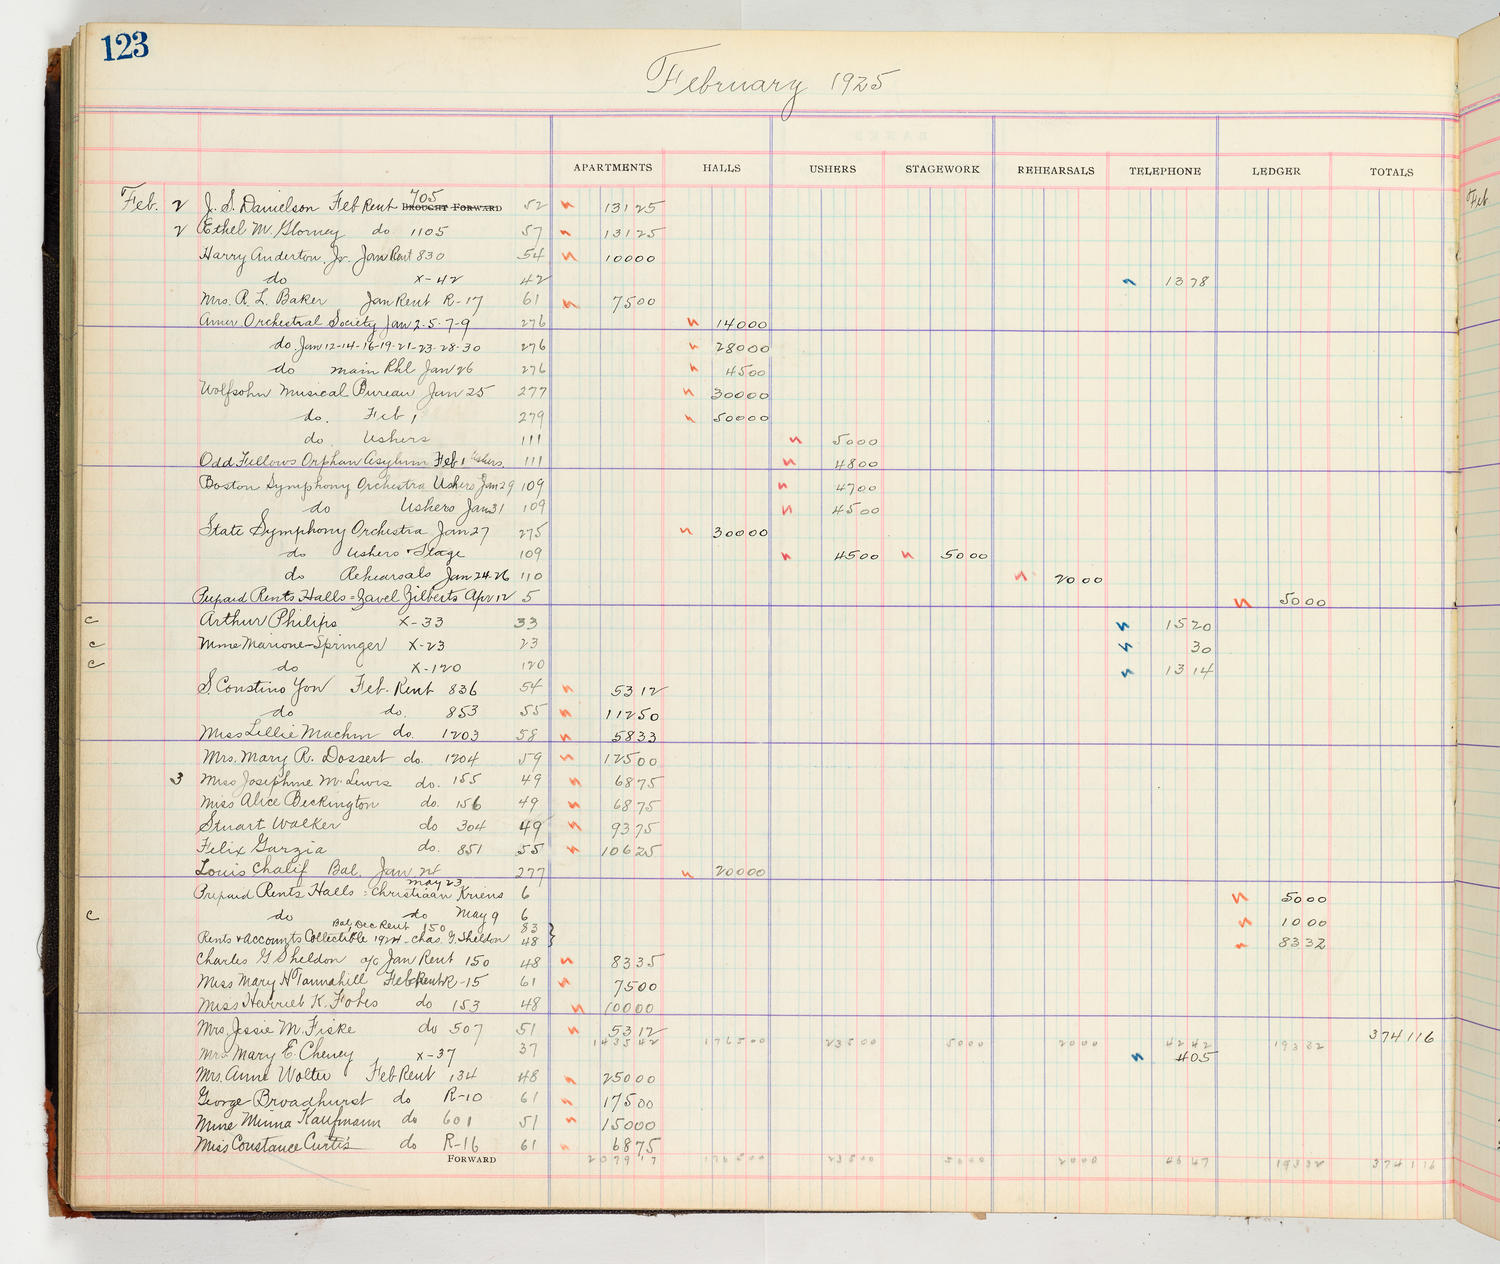 123
February 1925
APARTMENTS HALLS USHERS STAGEWORK REHEARSALS TELEPHONE LEDGER TOTALS
Feb. 2 J. S. Danielson Feb Rent 705 BROUGHT FORWARD 52 131 25
2 Ethel M. Glorney do 1105 57 131 25
Harry Anderton, Jr. Jan Rent 830 54 100 00
do X-42 42 13 78
Mrs. A. L. Baker Jan Rent R-17 61 75 00
Amer. Orchestral Society Jan 2-5-7-9 276 140 00
do. Jan 12-14-16-19-21-23-28-30 276 280 00
do main Rhl Jan 26 276 45 00
Wolfsohn Musical Bureau Jan 25 277 300 00
do. Feb 1 279 500 00
do. Ushers 111 50 00
Odd Fellows Orphan Asylum Feb 1 Ushers. 111 48 00
Boston Symphony Orchestra Ushers Jan 29 109 47 00
do Ushers Jan 31 109 45 00
State Symphony Orchestra Jan 27 275 300 00
do Ushers + Stage 109 45 00 50 00
do Rehearsals Jan 24-26 110 20 00
Prepaid Rents Halls = Zavel Zilberts Apr 12 5 50 00
c Arthur Philips X-33 33 15 20
c Mme Marione-Springer X-23 23 30
c do X-120 120 13 14
S. Constino Yon Feb. Rent 836 54 53 12
do do. 853 55 112 50
Miss Lillie Machin do. 1203 58 58 33
Mrs. Mary R. Dossert do. 1204 59 125 00
3 Miss Josephine M. Lewis do. 155 49 68 75
Miss Alice Beckington do. 156 49 68 75
Stuart Walker do 304 49 93 75
Felix Garzia do. 851 55 106 25
Louis Chalif Bal. Jan 277 200 00
Prepaid Rents Halls = Christiaan Kriens May 23 6 50 00
c do do May 9 6 10 00
Bal. Dec Rent 150 83
Rents & Accounts Collectible 1924 - Chas. G. Sheldon 48 83 32
Charles G Sheldon a/c Jan Rent 150 48 83 35
Miss Mary H Tannahill Feb Rent R-15 61 75 00
Miss Harriet K. Fobes do 153 48 100 00
Mrs. Jessie M. Fiske do 507 51 53 12
1435 42 1765 00 235 00 50 00 20 00 42 42 193 32 3741 16
Mrs. Mary E. Cheney X-37 37 4 05
Mrs. Anne Wolter Feb Rent 134 48 250 00
George Broadhurst do R-10 61 175 00
Mme Minna Kaufmann do 601 51 150 00
Miss Constance Curtis do R-16 61 68 75
FORWARD 2079 17 1765 00 235 00 50 00 20 00 46 47 193 32 3741 16
Feb